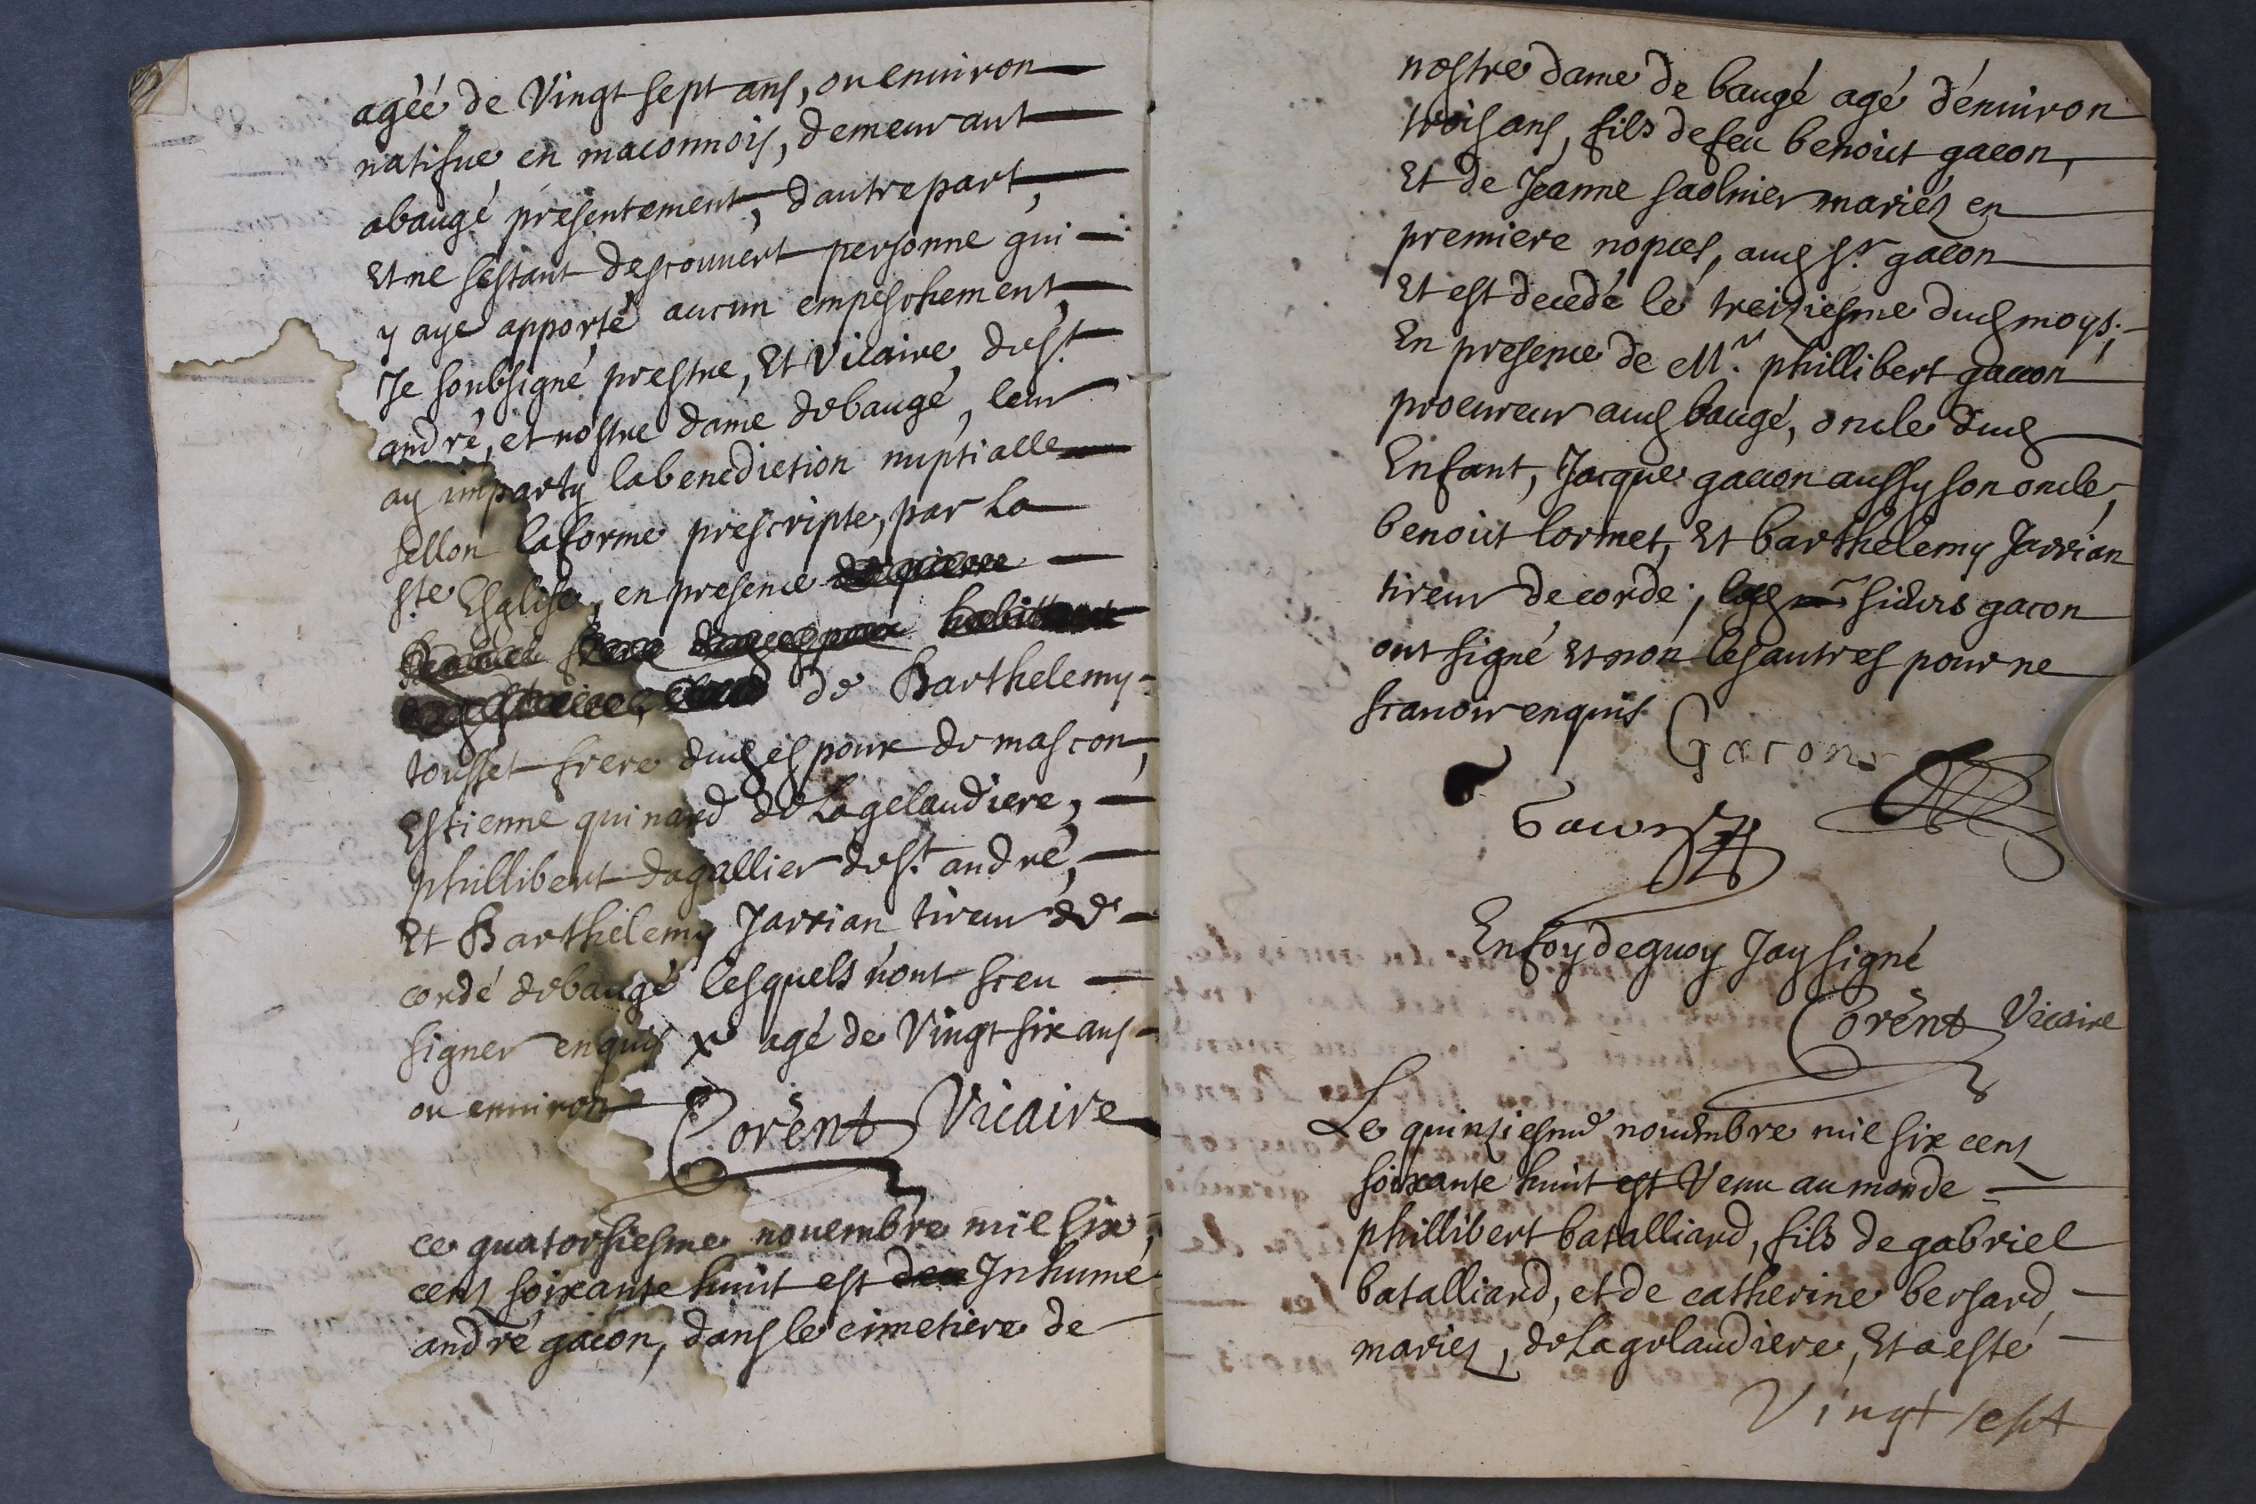 agéé de Vingt sept ans, ou enuiron
natifue en maconnois, demeurant
abaugé présentement, dautre part,
Et ne sestant descouuert personne qui
y aye apporté aucun empeschement,
Je soubsigné prestre, Et Vicaire, de st
andré, et nostre dame de baugé, leur
ay imparty la benediction nuptialle
sellon la forme prescripte, par La
ste Esglise, en presence
de Barthelemy
tousset frere dud espoux de mascon,
Estienne quinard de Lagelaudiere,
phillibert dagallier de st andré,
Et Barthelemy Jarrian tireur de
cordé de baugé lesquels nont sceu
signer enquis x agé de Vingt six ans
ou enuiron
Corent Vicaire
ce quatorsiesme nouembre mil six
cens soixante huit est Inhumé
andré gacon, dans le cimetiere de
nostre dame de baugé agé d'énuiron
trois ans, fils de feu benoict gacon,
Et de Jeanne saolnier mariés en
premiere nopces, aud sr. gacon
Et est decedé le treiziesme dud moys;
En presence de Mr. phillibert gacon
procureur aud baugé, oncle dud
Enfant, Jacque gacon aussy son oncle,
benoict lormet, Et barthélemy Jarrian
tireur de corde; lesd sieurs gacon
ont signé et non les autres pour ne
scauoir enquis
Gacon
Gacon
En foy de quoy Jay signé
Corent Vicaire
Le quinziesme nouembre mil six cens
soixante huit est Venu au monde
phillibert batalliard, fils de gabriel
batalliard, et de catherine bersard,
mariez, de Lagelaudiere, Et a esté
Vingt sept